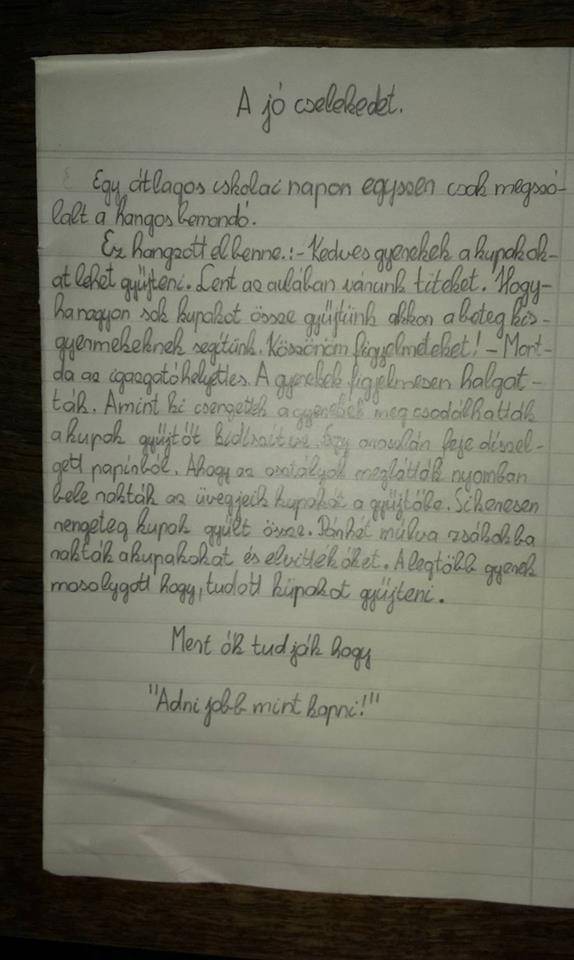 A jó cselekedet.
Egy átlagos iskolai napon egyszen csak megszó-
lalt a hangos bemondó.
Ez hangzott el benne.:- Kedves gyerekek a kupakok-
at lehet gyűjteni. Lent az aulában várunk titeket. Hogy-
ha nagyon sok kupakot össze gyűjtünk akkor a beteg kis-
gyermekeknek segítünk. Köszönöm figyelmeteket! - Mont-
da az igazgatóhelyettes. A gyerekek figyelmesen halgat-
ták. Amint ki csengettek a gyerekek meg csodálhatták
a kupak gyűjtőt Egy feje díszel-
gett papírból. Ahogy az osztályok meglátták nyomban
bele rakták az üvegjeik kupakát a gyűjtőbe. Sikeresen
rengeteg kupak gyűlt össze. Párhét múlva zsákokba
rakták a kupakokat és elvitték őket. A legtöbb gyerek
mosolygott hogy, tudott kupakot gyűjteni.
Mert ők tudják hogy
"Adni jobb mint kapni!"